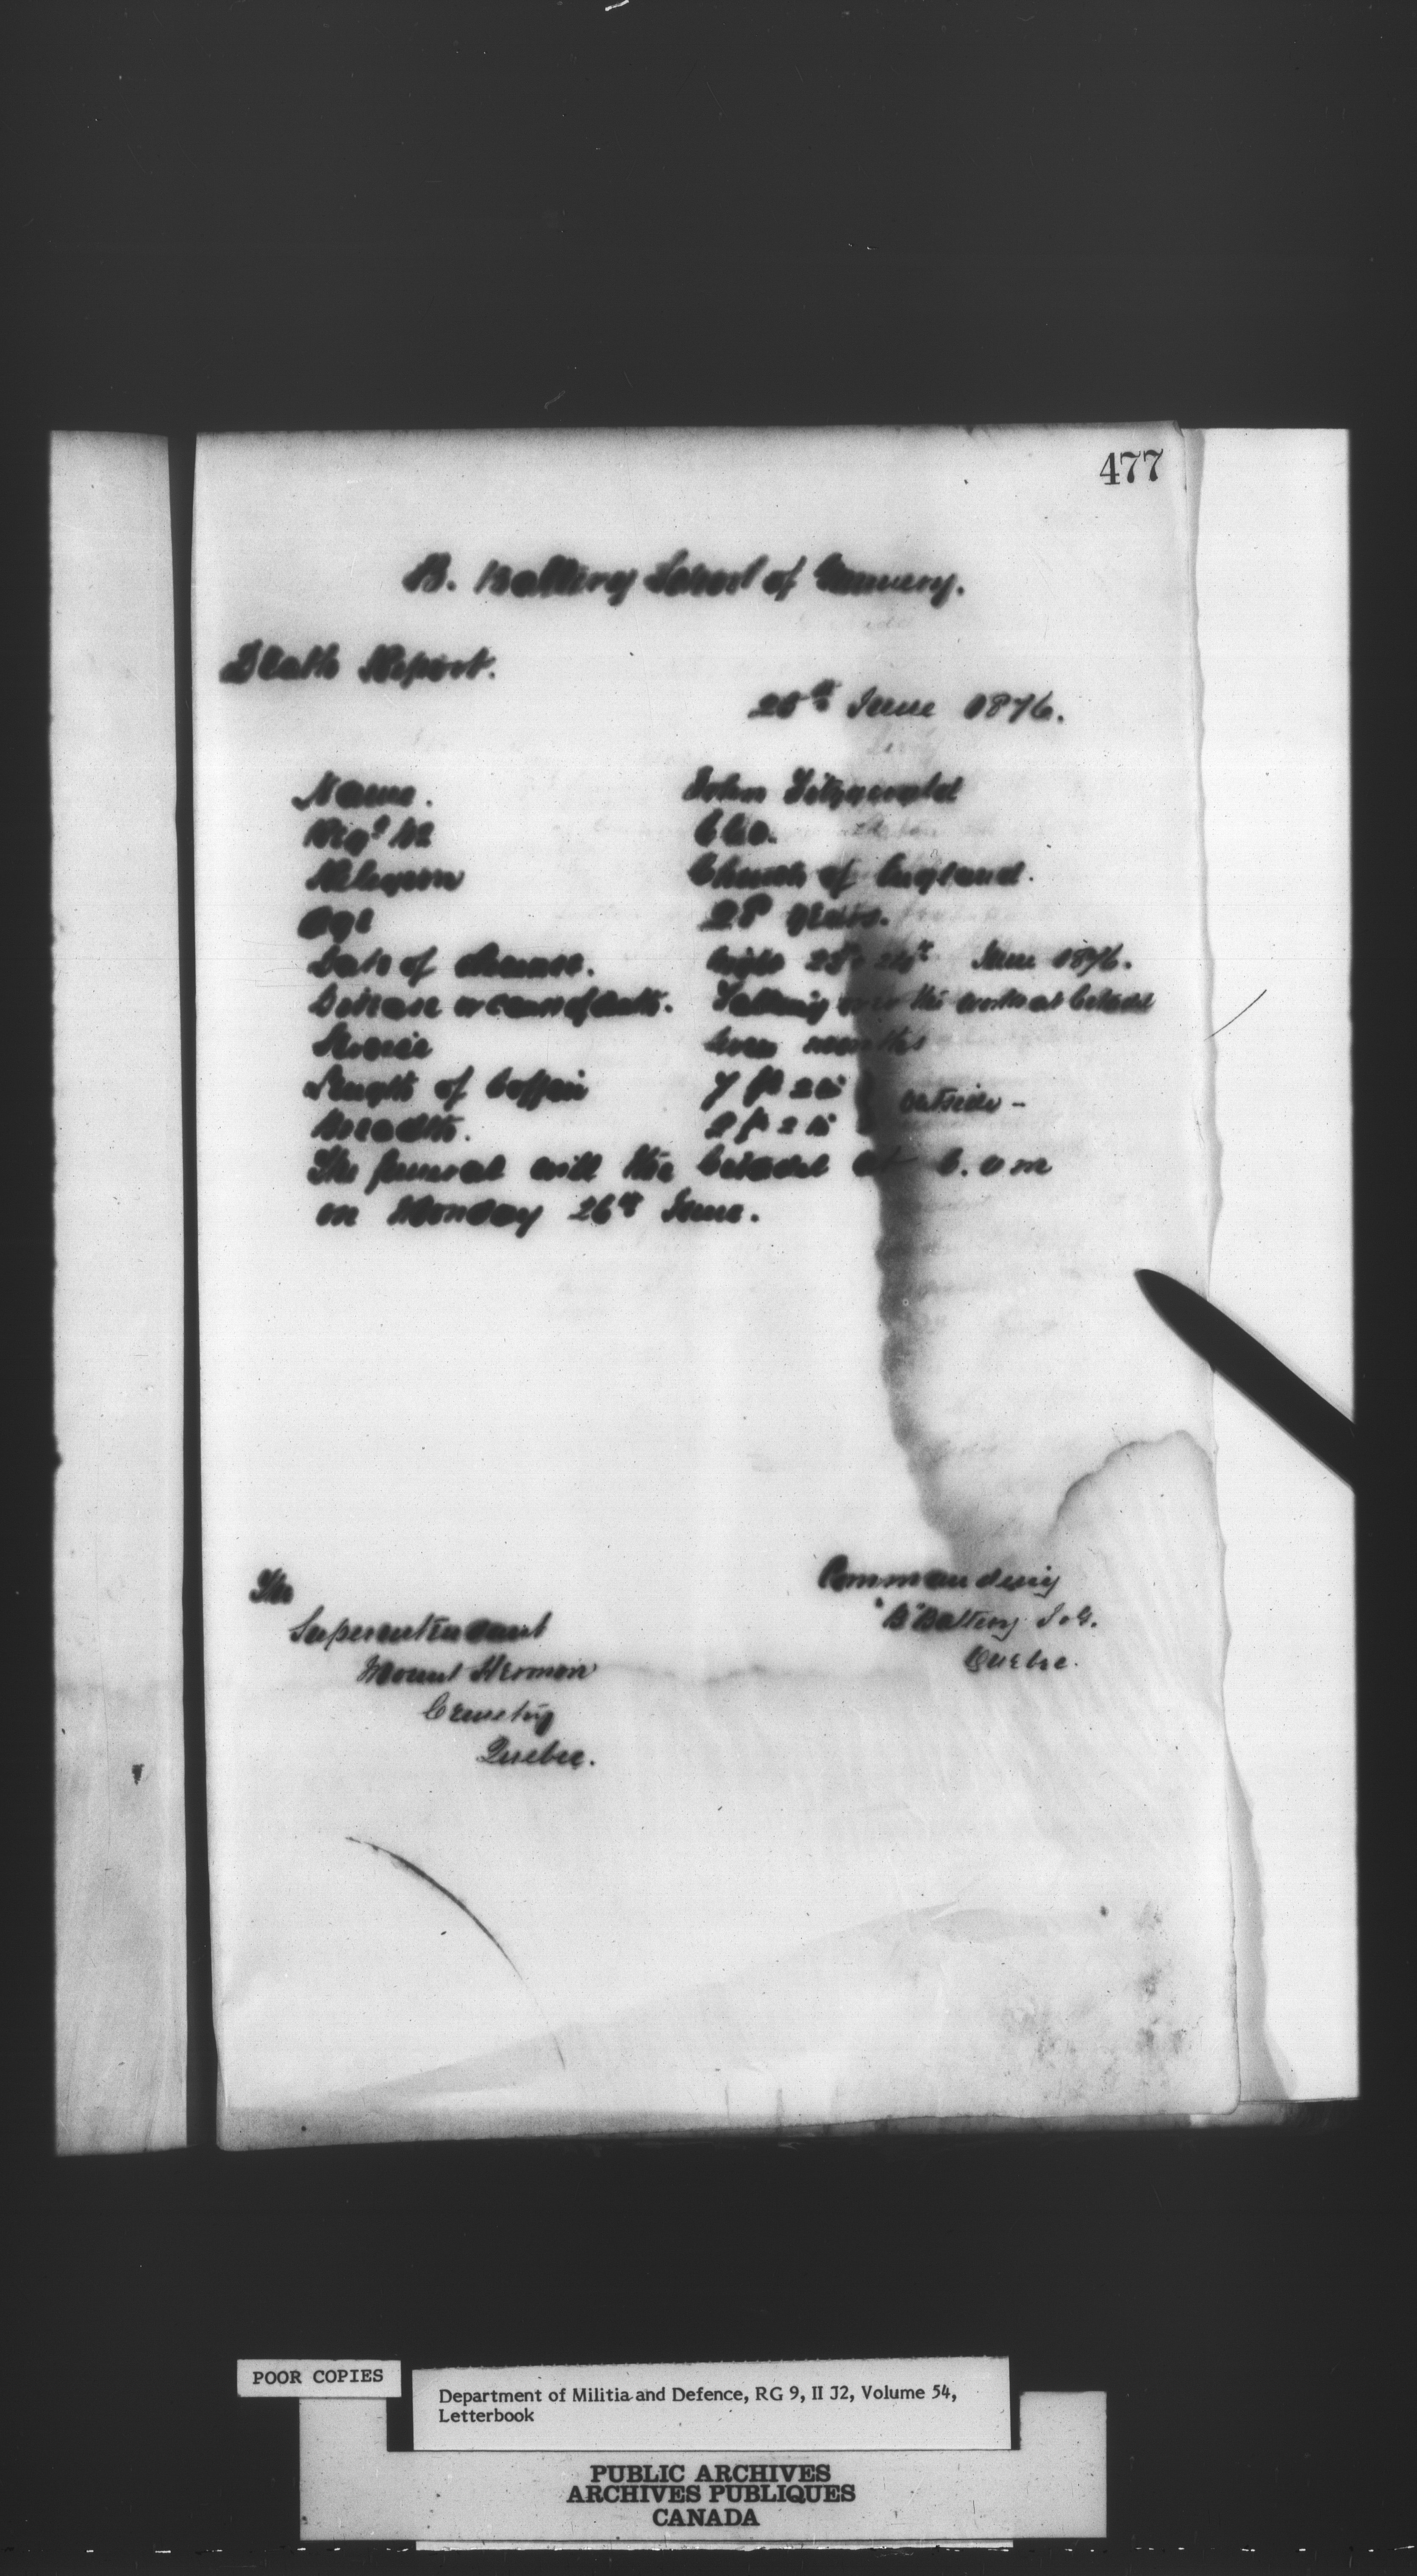 477
B. Battery School of Gunnery.
Death Report.
25th June 1876.
Name. John Fitzgerald
Regl No
Religion Church of England.
Age 28 years.
Date of decease. night 23rd 24th June 1876.
Disease or cause of death. Falling over the works at Citadel
Service months
Length of Coffin 7 ft 2 in
outside -
Breadth. 2 ft 2 in
The funeral will the Citadel at 6. a m
on Monday 26th June.
Commanding
"B" Battery S.G.
Quebec.
The
Superintendant
Mount Hermon
Cemetery
Quebec.
POOR COPIES
Department of Militia and Defence, RG 9, II J2, Volume 54,
Letterbook
PUBLIC ARCHIVES
ARCHIVES PUBLIQUES
CANADA